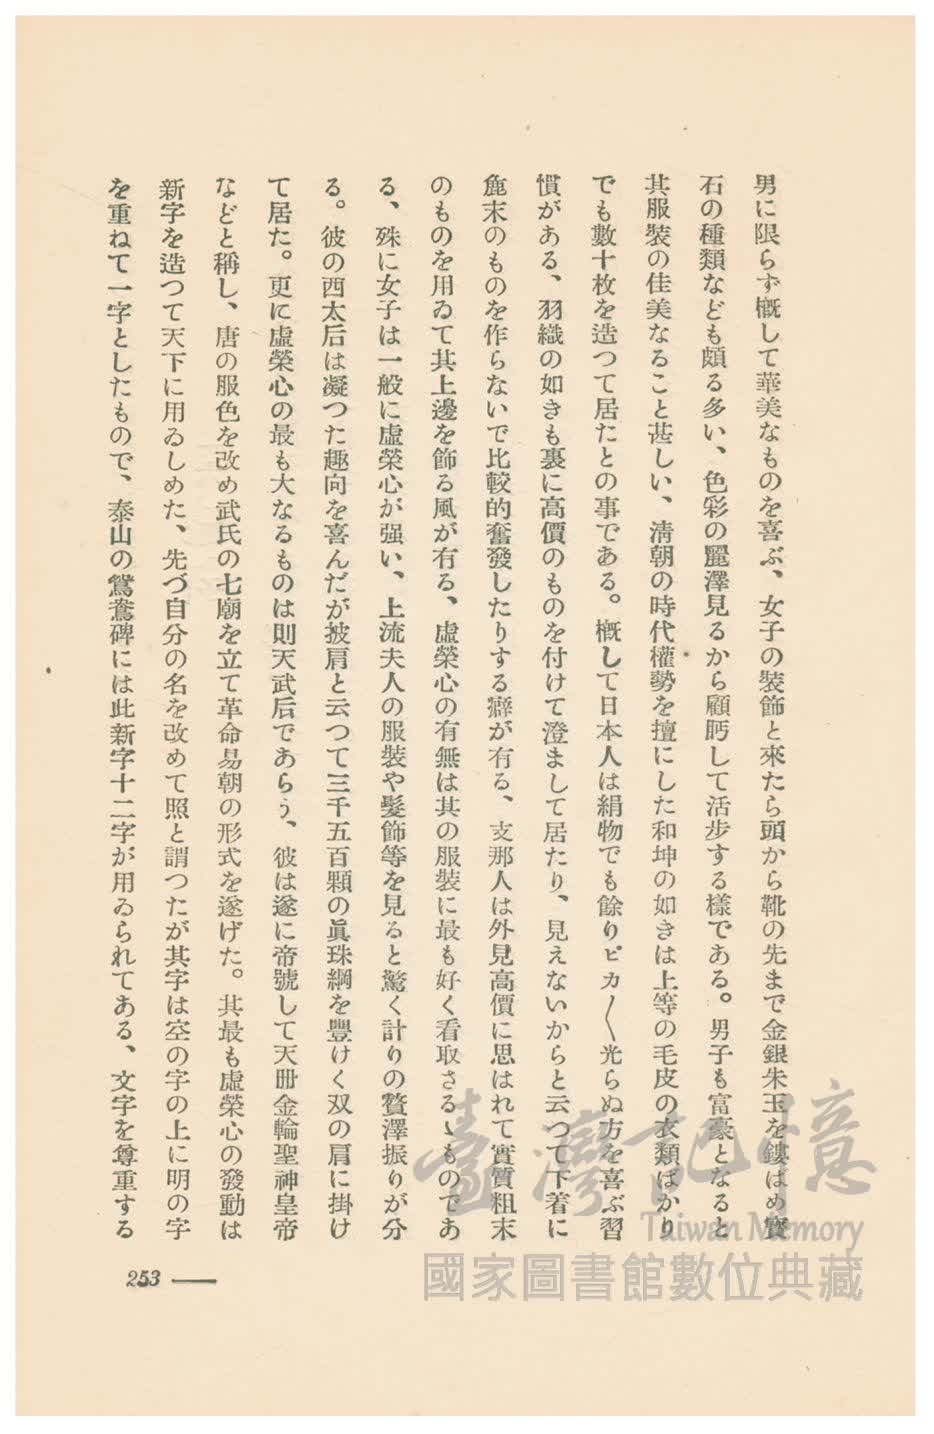 男に限らず概して華美なものを喜ぶ、女子の裝飾と來たら頭から靴の先まで金銀朱玉を鏤はめ寶
石の種類なども頗る多い、色彩の麗澤見るから顧眄して活步する樣である。男子も富豪となると
其服裝の佳美なること甚しい、淸朝の時代權勢を擅にした和珅の如きは上等の毛皮の衣類ばかり
でも數十枚を造つて居たとの事である。槪して日本人は絹物でも餘りピカ〱光らぬ方を喜ぶ習
慣がある、羽織の如きも裏に高價のものを付けて澄まして居たり、見えないからと云つて下着に
麁末のものを作らないで比較的奮發したりする癖が有る、支那人は外見高價に思はれて實質粗末
のものを用ゐて其上邊を飾る風が有る、虛榮心の有無は其の服裝に最も好く看取さるゝものであ
る、殊に女子は一般に虛榮心が强い、上流夫人の服裝や髮飾等を見ると驚く計りの贅澤振りが分
る。彼の西太后は凝つた趣向を喜んだが披肩と云つて三千五百顆の眞珠綱を豐けく双の肩に掛け
て居た。更に虛榮心の最も大なるものは則天武后であらう、彼は遂に帝號して天册金輪聖神皇帝
などと稱し、唐の服色を改め武氏の七廟を立て革命易朝の形式を遂げた。其最も虛榮心の發動は
新字を造つて天下に用ゐしめた、先づ自分の名を改めて照と謂つたが其字は空の字の上に明の字
を重ねて一字としたもので、泰山の鴛鴦碑には此新字十二字が用ゐられてある、文字を尊重する
253
臺灣記憶
Taiwan Memory
國家圖書館數位典藏